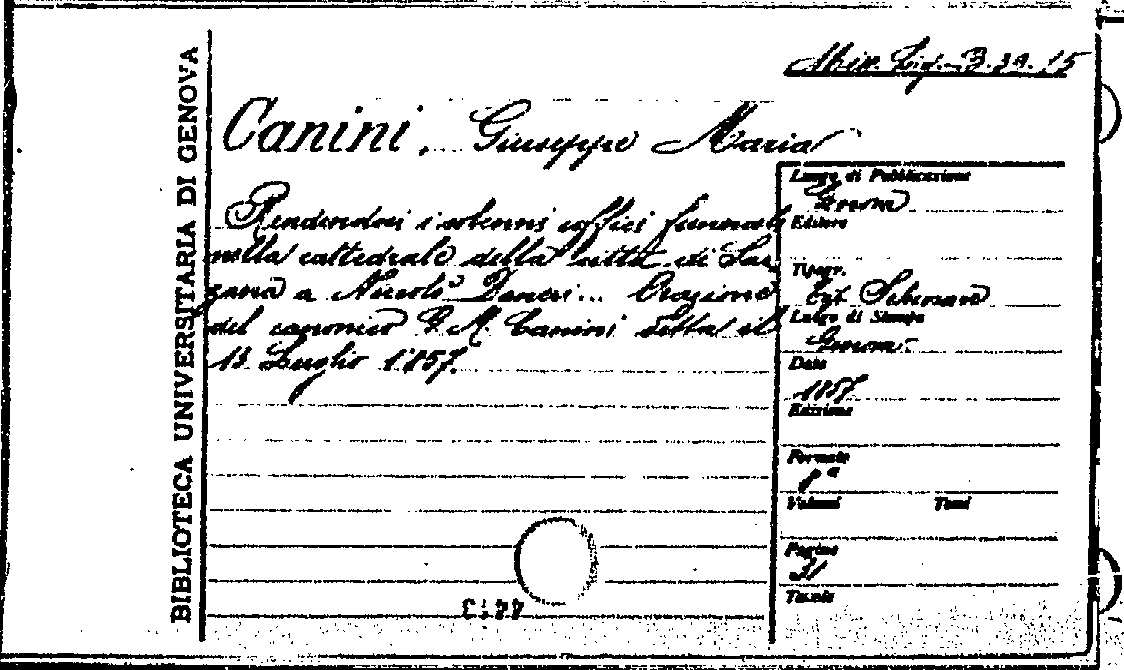 BIBLIOTECA UNIVERSITARIA DI GENOVA
Misc. Lig. B. 39. 15
Canini, Giuseppe Maria
Rendendosi i solenni uffici funerali
nella cattedrale della città di Sar
zana a Niccolò ... Orazione
del canonico G. M. Canini detta il
13 Luglio 1857.
Luogo di Pubblicazione
Genova
Editore
Tipogr.
Tip. Schenone
Luogo di Stampa
Genova
Data
1857
Edizione
Formato
8°
Volumi Tomi
Pagine
31
Tavole
4413